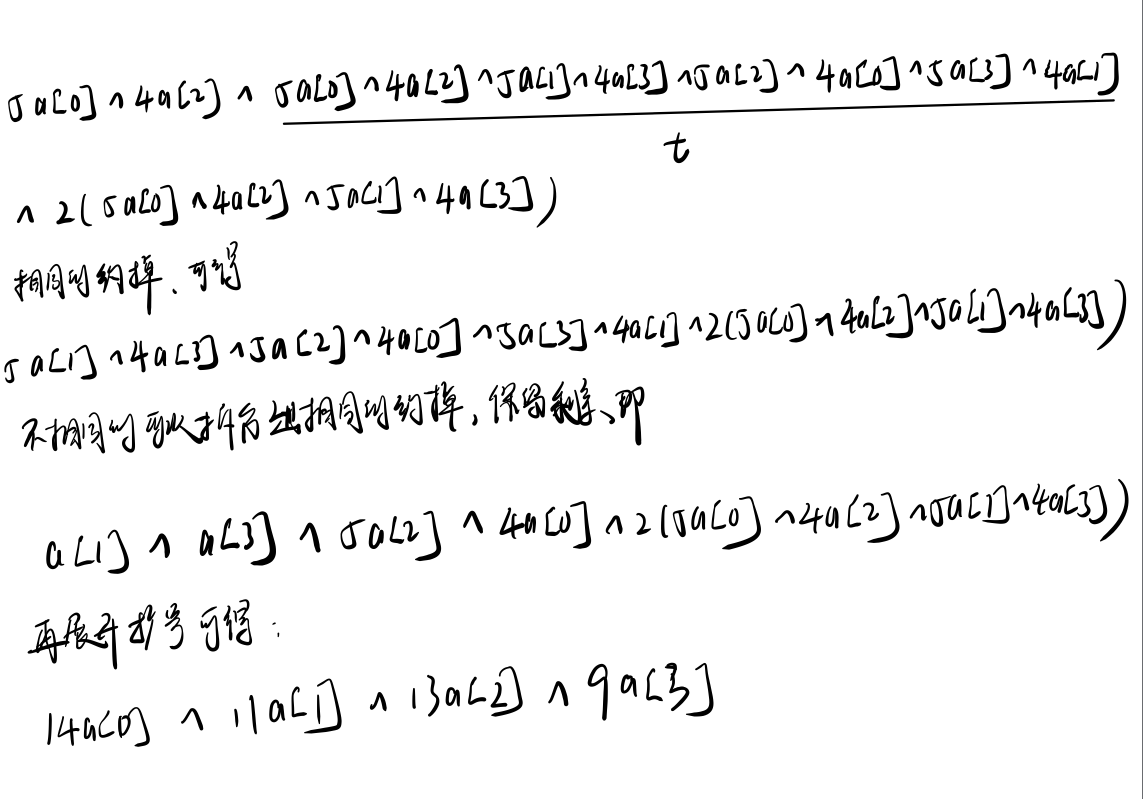 5a[0] ^ 4a[2] ^ 5a[0] ^ 4a[2] ^ 5a[1] ^ 4a[3] ^ 5a[2] ^ 4a[0] ^ 5a[3] ^ 4a[1]
t
^ 2(5a[0] ^ 4a[2] ^ 5a[1] ^ 4a[3])
相同的约掉、可得
5a[1] ^ 4a[3] ^ 5a[2] ^ 4a[0] ^ 5a[3] ^ 4a[1] ^ 2(5a[0] ^ 4a[2] ^ 5a[1] ^ 4a[3])
不相同的可以拆分出相同的约掉，保留剩余、即
a[1] ^ a[3] ^ 5a[2] ^ 4a[0] ^ 2(5a[0] ^ 4a[2] ^ 5a[1] ^ 4a[3])
再展开括号可得：
14a[0] ^ 11a[1] ^ 13a[2] ^ 9a[3]